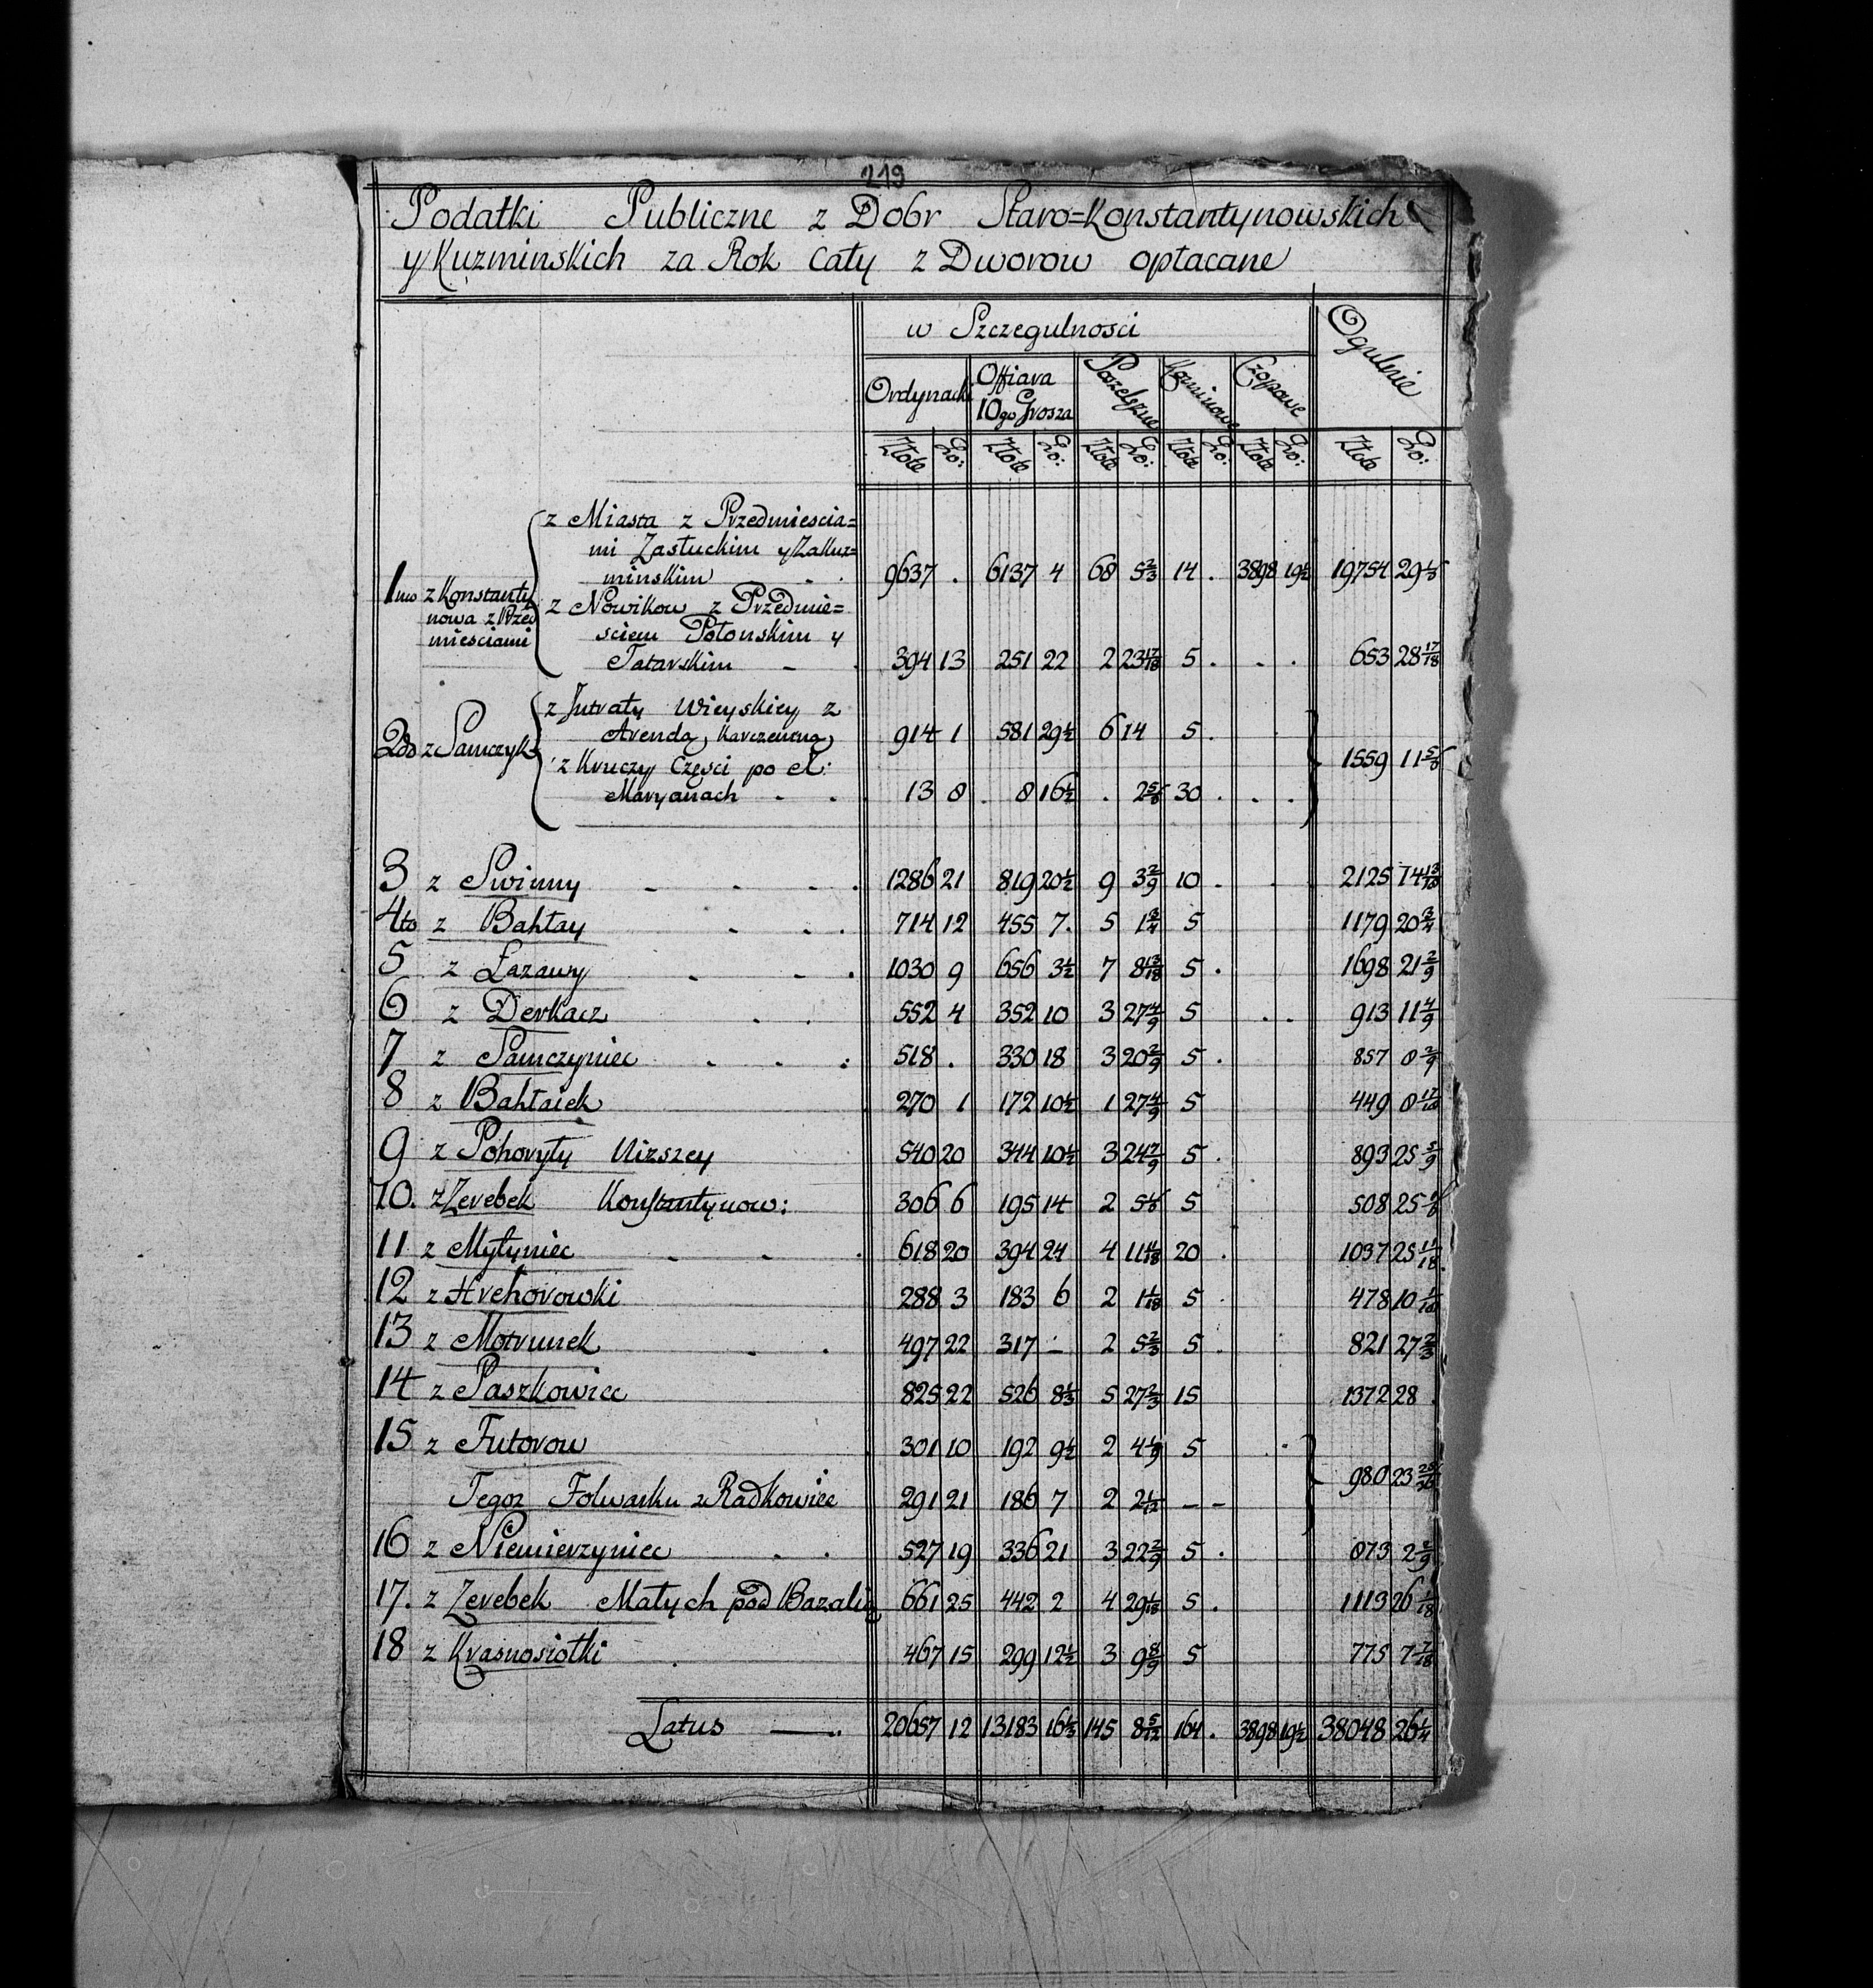 219
Podatki Publiczne z Dobr Staro=Konstantynowskich
y Kuzminskich za Rok Cały z Dworow opłacane
w Szczegulnosci Ogulnie
Ordynacki Offiara 10go Grosza Poszelszne Kominowe Czopowe
Złote Gro: Złote Gro: Złote Gro: Złote Gro: Złote Gro: Złote Gro:
1mo z Konstanty
nowa z Przed
miesciami
z Miasta z Przedmiescia=
mi Zasłuckim y Zakuz=
minskim 9637 . 6137 4 68 5 2/3 14 . 3898 19 1/2 19754 29 1/6
z Nowikow z Przedmie=
sciem Połonskim y
Tatarskim 394 13 251 22 2 23 17/18 5 . . . 653 28 17/18
2do z Samczyk
z Jntraty Wieyskiey z
Arendą Karczemną 914 1 581 29 1/2 6 14 5 .
z Kruczy Części po
Maryanach 13 8 8 16 1/2 . 2 5/6 30 . . . 1559 11 5/6
3 z Swinny 1286 21 819 20 1/2 9 3 2/9 10 . 2125 14 13/18
4to z Bahłay 714 12 455 7. 5 1 3/4 5 1179 20 3/4
5 z Łazawy 1030 9 656 3 1/2 7 8 13/18 5 . 1698 21 2/9
6 z Derkacz 552 4 352 10 3 27 4/9 5 . . 913 11 4/9
7 z Samczyniec 518 . 330 18 3 20 2/9 5 . 857 8 2/9
8 z Bahłaiek 270 1 172 10 1/2 1 27 4/9 5 449 8 17/18
9 z Pohoryły Niższey 540 20 344 10 1/2 3 24 7/9 5 . 893 25 5/9
10. z Zerebek Konstantynow: 306 6 195 14 2 5 1/6 5 508 25 1/6
11 z Mytyniec 618 20 394 24 4 11 11/18 20 . 1037 25 11/18
12 z Hrehorowki 288 3 183 6 2 1 1/18 5 . 478 10 1/18
13 z Motrunek 497 22 317 - 2 5 2/3 5 . 821 27 2/3
14 z Paszkowiec 825 22 526 8 1/3 5 27 2/3 15 1372 28
15 z Futorow 301 10 192 9 1/2 2 4 1/9 5
Tegoz Folwarku z Radkowiec 291 21 186 7 2 2 1/12 - - 980 23 25/36
16 z Niemierzyniec 527 19 336 21 3 22 2/9 5 . 873 2 2/9
17. z Zerebek Małych pod Bazalią 661 25 442 2 4 29 1/18 5 . 1113 26 1/18
18 z Krasnosiołki 467 15 299 12 1/2 3 9 8/9 5 775 7 7/18
Latus 20657 12 13183 16 1/3 145 8 5/12 164 . 3898 19 1/2 38048 26 1/4